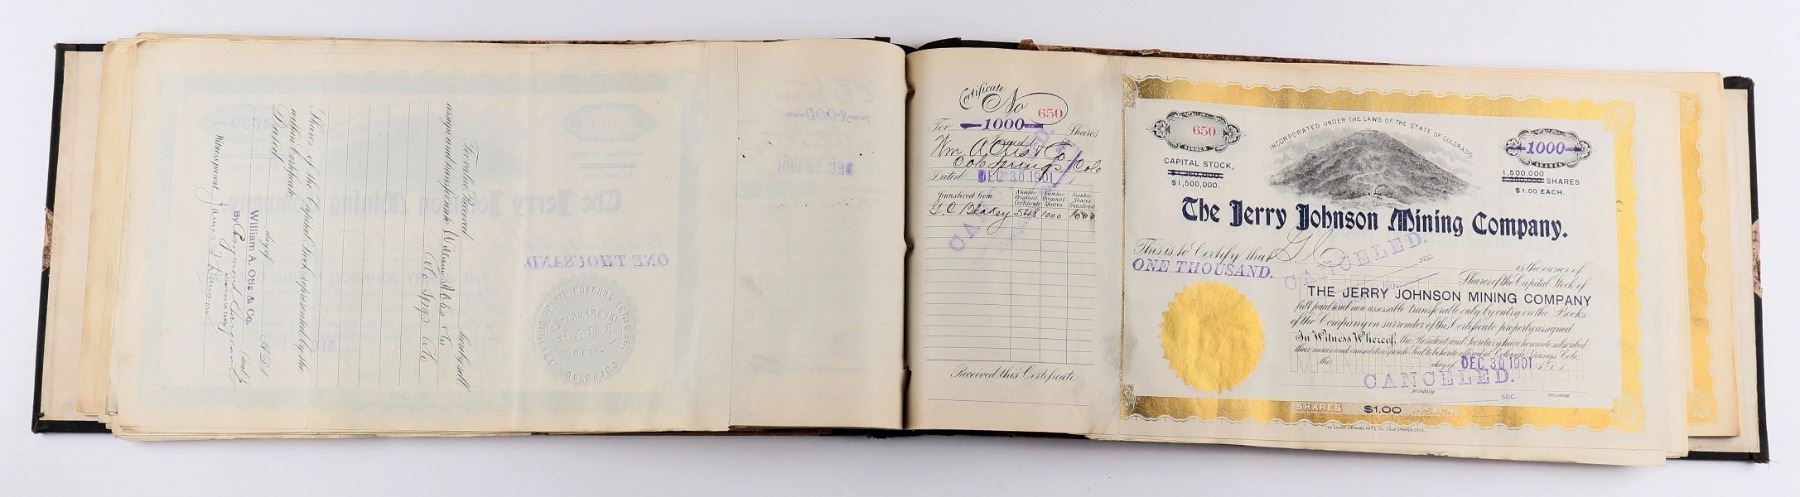 For value Received hereby sell
assign and transfer unto William A. Otis & Co
Colo Spgs Colo
Shares of the Capital Stock represented by the
within Certificate
Dated day of A.D. 1
William A. Otis & Co.
By
Witness present
ONE THOUSAND.
DEC 30 1901
Certificate
No 650
For 1000 Shares
Issued to
Wm A Otis & Co
Colo Springs Colo
Dated DEC 30 1901
Transferred from Number Original Certificate Number Original Shares Number Shares Transferred
G. C. Blakey 548 1000 1000
CANCELED.
Received this Certificate
650
NUMBER
INCORPORATED UNDER THE LAWS OF THE STATE OF COLORADO
1000
SHARES
CAPITAL STOCK.
$1,500,000.
1,500,000
SHARES
$1.00 EACH.
The Jerry Johnson Mining Company.
This is to Certify that
CANCELED.
SEC.
is the owner of
ONE THOUSAND.
Shares of the Capital Stock of
THE JERRY JOHNSON MINING COMPANY
full paid and non assessable transferable only by entry on the Books
of the Company on surrender of this Certificate properly assigned
In Witness Whereof, the President and Secretary have hereunto subscribed
their names and caused the corporate Seal to be hereto affixed at Colorado Springs, Colo.
this day of DEC 30 1901 A.D. 1
CANCELED.
SEC.
SHARES $1.00 EACH